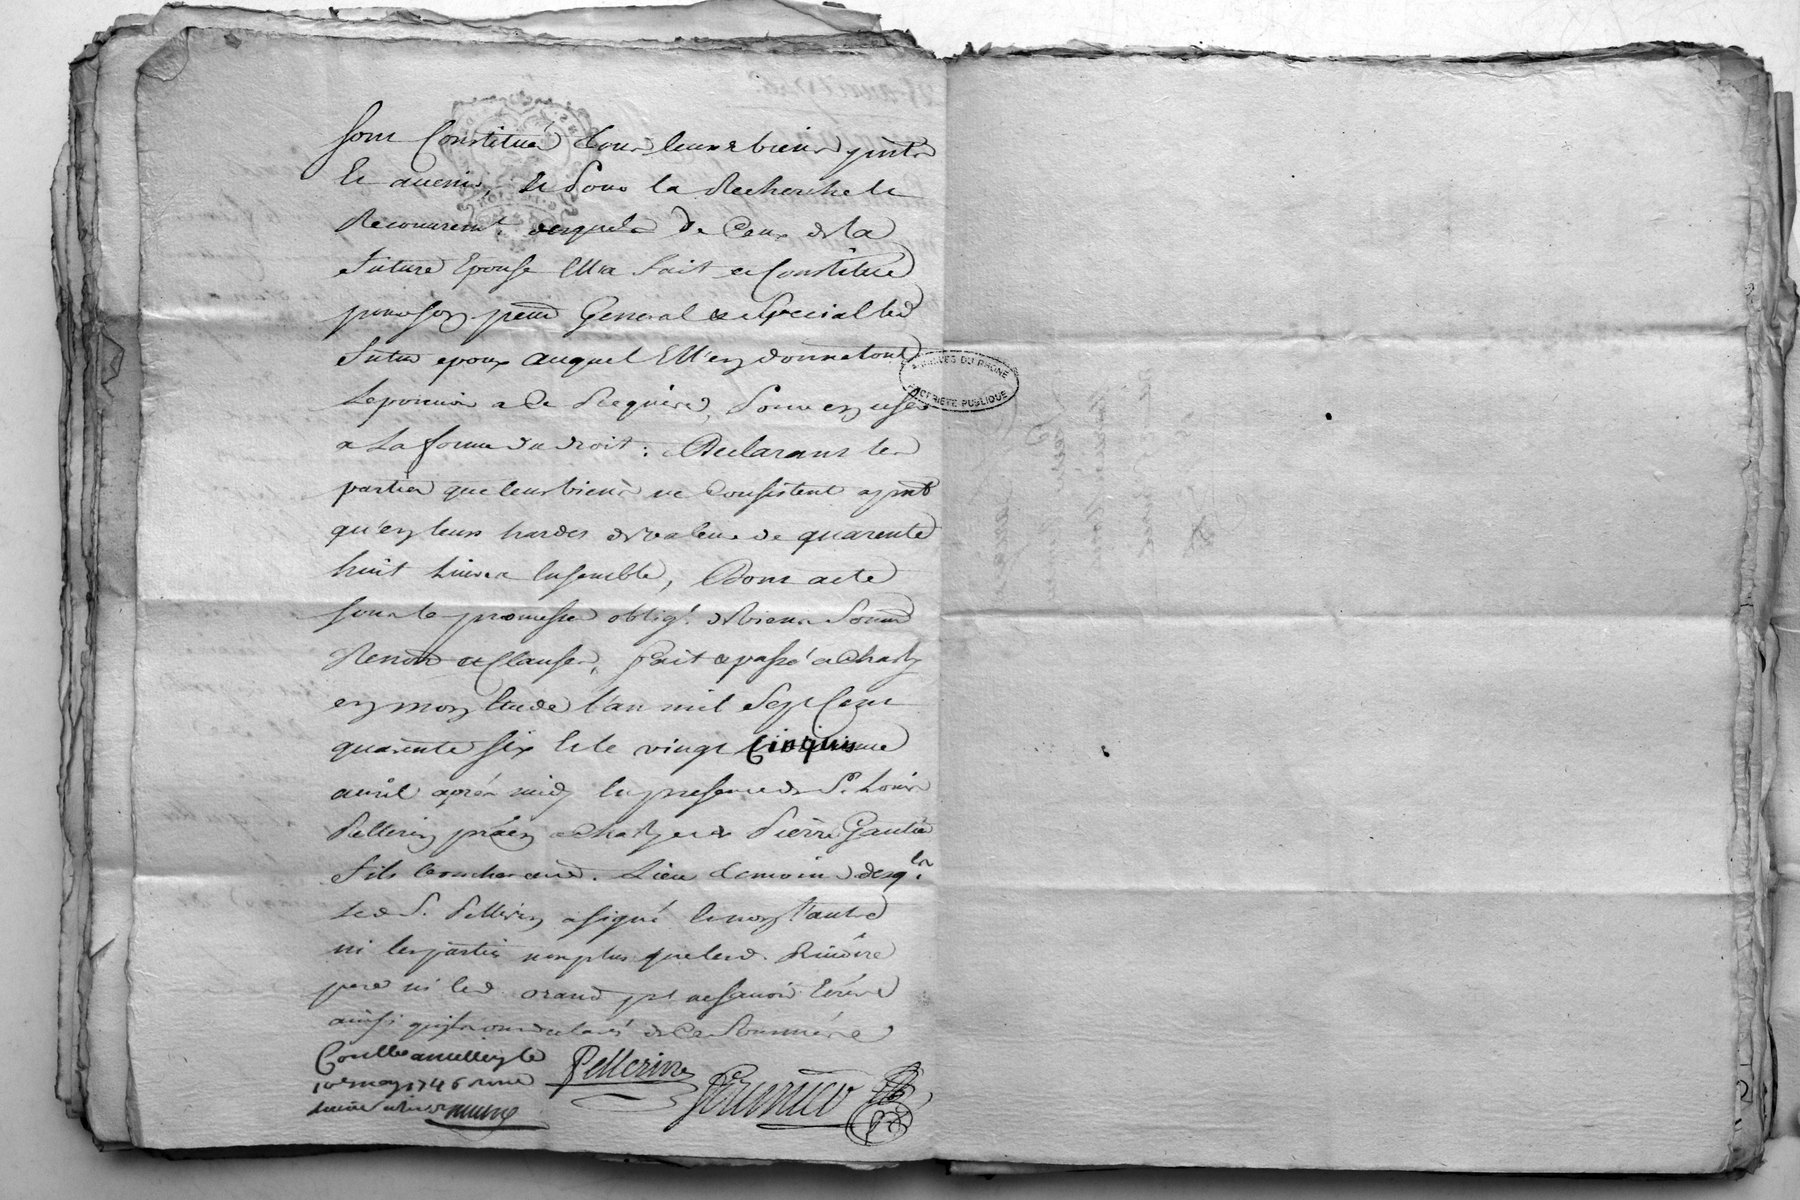 sont Constitué tous leurs biens pnts
et avenir, et Pour la Recherche et
Recouvremt. desquels de Ceux de la
future Epouse Elle a fait et Constitué
pour son pcur General et Special led
futur epoux auquel Elle en donne tout
Le pouvoir a Ce Requis, Pour en user
a La forme du droit : Declarant les
parties que leurs biens ne Consistent a pnt
qu'en leurs hardes de valeur de quarente
huit Livres Ensemble, Dont acte
sous les promesses obligé. de biens Soum
Renon et Clauses, fait et passé a Charly
en mon Etude l'an mil Sept Cent
quarente six et le vingt Cinquieme
avril aprés midy En presence de Sr. Louis
Pellerin a Charly et de Pierre Gautie
fils dud. Lieu temoins desqls.
led Sr. Pellerin a signé et non l'autre
ni les parties non plus que led.
pere ni led pt ne scavoir Ecrire
ainsi qu'ils ont declaré de Ce
Pellerin
Conllé a millery le
10e may 1746 Reçu
ARCHIVES DU RHÔNE
PROPRIÉTÉ PUBLIQUE